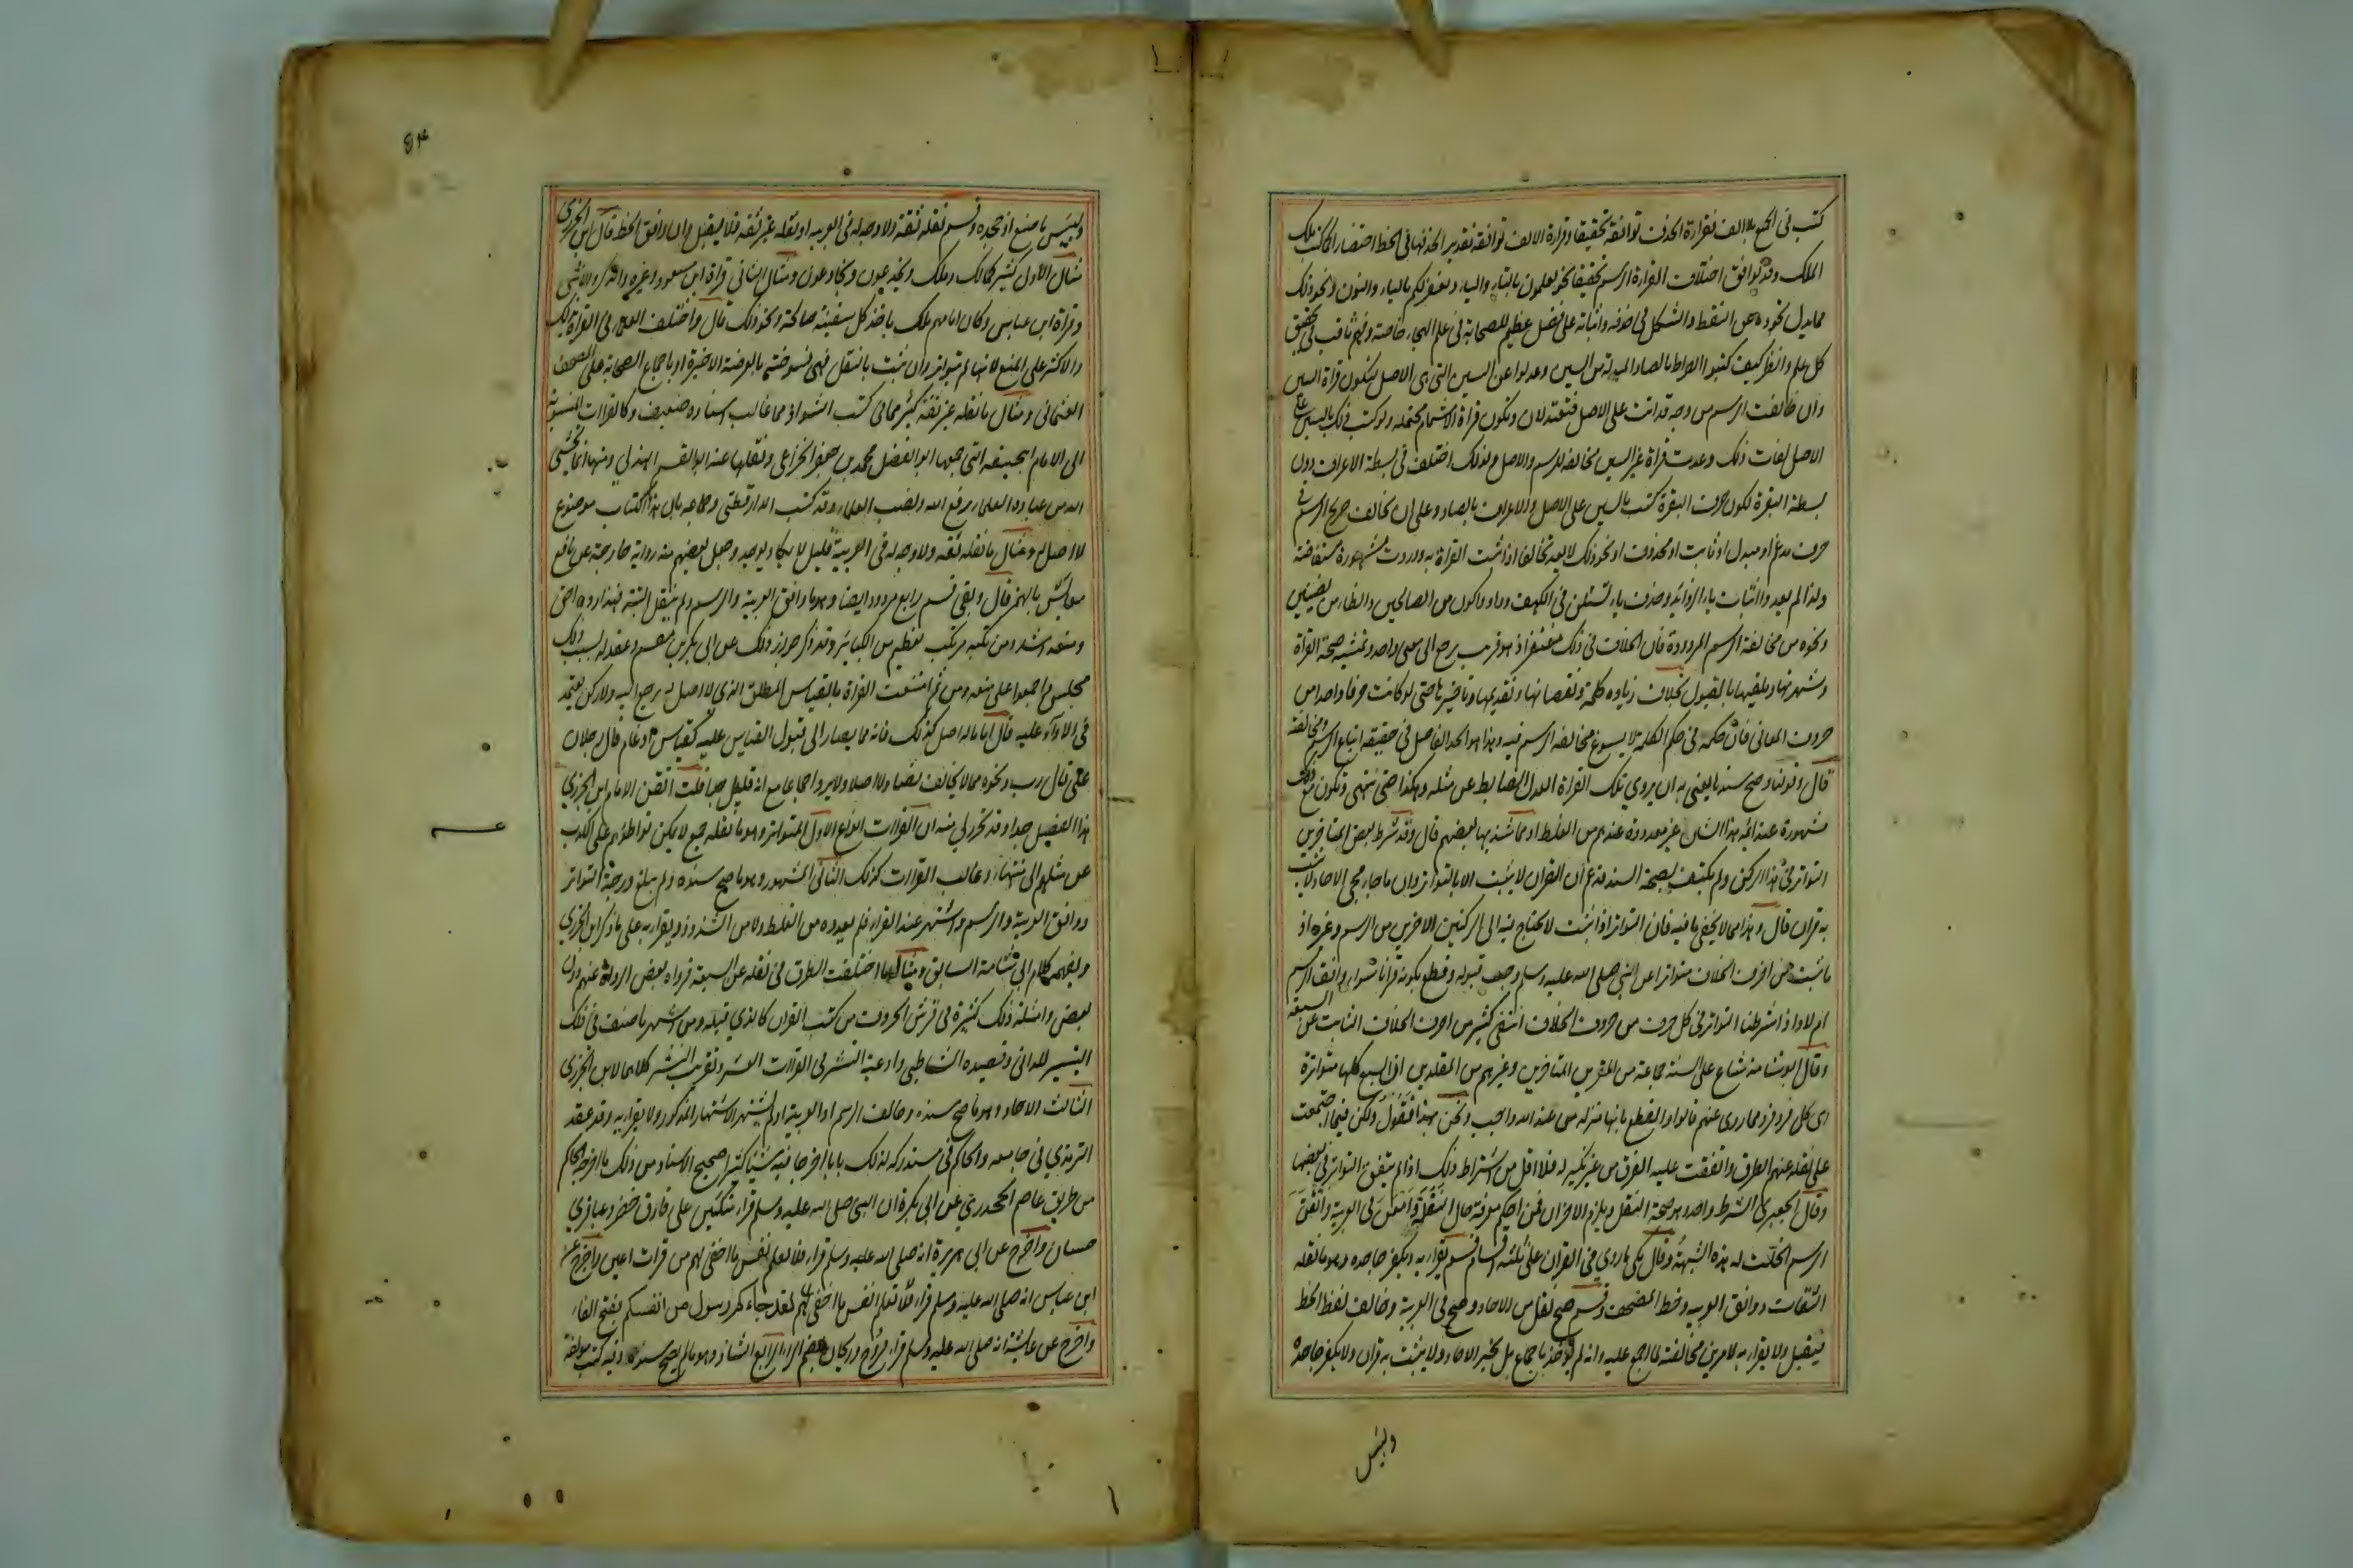 كتب فى الجميع بلا الف فقراءة الحذف توافقه تحقيقا وقراءة الالف توافقه تقديرا لحذفها فى الخط اختصارا كما كتب ملك
الملك وقد توافق اختلاف القراءة الرسم تحقيقا نحو تعلمون بالتاء والياء ويغفر لكم بالياء والنون ونحو ذلك
مما يدل تجرده عن النقط والشكل فى حذفه واثباته على فضل عظيم للصحابة فى علم الهجاء خاصة وفهم ثاقب فى تحقيق
كل علم وانظر كيف كتبوا الصراط بالصاد المبدلة من السين وعدلوا عن السين التى هى الاصل لتكون قراة السين
وان خالفت الرسم من وجه قد اتت على الاصل فتعتدلان وتكون قراة الاشمام محتملة ولو كتب ذلك بالسين على
الاصل لفات ذلك وعدت قراة غير السين مخالفة للرسم والاصل ولذلك اختلف فى بسطة الاعراف دون
بسطة البقرة لكون حرف البقرة كتب بالسين على الاصل والاعراف بالصاد وعلى ان مخالف صريح الرسم فى
حرف مدغم او مبدل او ثابت او محذوف او نحو ذلك لا يعد مخالفا اذا ثبت القراة به ووردت مشهورة مستفاضة
ولذا لم يعدوا اثبات ياء الزوائد وحذف ياء تسئلن فى الكهف وواو واكون من الصالحين والظاء من بضنين
ونحوه من مخالفة الرسم المردودة فان الخلاف فى ذلك مغتفر اذ هو قريب يرجع الى معنى واحد وتمشيه صحة القراة
وشهرتها وتلقيها بالقبول بخلاف زيادة كلمة ونقصانها وتقديمها وتاخيرها حتى لو كانت حرفا واحدا من
حروف المعانى فان حكمه فى حكم الكلمة لا يسوغ مخالفة الرسم فيه وهذا هو الحد الفاصل فى حقيقة اتباع الرسم ومخالفته
قال وقولنا وصح سندها يعنى به ان يروى تلك القراة العدل الضابط عن مثله وهكذا حتى ينتهى وتكون مع ذلك
مشهورة عند ائمة هذا الشان غير معدودة عندهم من الغلط او مما شذ بها بعضهم قال وقد شرط بعض المتاخرين
التواتر فى هذا الركن ولم يكتف بصحة السند وزعم ان القران لا يثبت الا بالتواتر وان ما جاء مجى الاحاد لا يثبت
به قران قال وهذا مما لا يخفى ما فيه فان التواتر اذا ثبت لا يحتاج فيه الى الركنين الاخرين من الرسم وغيره اذ
ما ثبت من احرف الخلاف متواترا عن النبى صلى الله عليه وسلم وجب قبوله وقطع بكونه قرانا سواء وافق الرسم
ام لا واذا شرطنا التواتر فى كل حرف من حروف الخلاف انتفى كثير من احرف الخلاف الثابت عن السبعة
وقال ابو شامة شاع على السنة جماعة من المقرين المتاخرين وغيرهم من المقلدين ان السبع كلها متواترة
اى كل فرد فرد مما روى عنهم قالوا والقطع بانها منزلة من عند الله واجب ونحن بهذا نقول ولكن فيما اجتمعت
على نقله عنهم الطرق واتفقت عليه الفرق من غير نكير له فلا اقل من اشتراط ذلك اذا لم يتفق التواتر فى بعضها
وقال الجعبرى الشرط واحد وهو صحة النقل ويلزم الاخران فمن احكم معرفة حال النقلة وامعن فى العربية واتقن
الرسم انحلت له هذه الشبهة وقال مكى ما روى فى القران على ثلثة اقسام قسم يقرا به ويكفر جاحده وهو ما نقله
الثقات ووافق العربية وخط المصحف وقسم صح نقله من الاحاد وصح فى العربية وخالف لفظ الخط
فيقبل ولا يقرا به لامرين مخالفته لما اجمع عليه وانه لم يؤخذ باجماع بل بخبر الاحاد ولا يثبت به قران ولا يكفر جاحده
وليس
٥٤
ولبئس ما صنع اذ جحده وقسم نقله ثقة ولا وجه له فى العربية او نقله غير ثقة فلا يقبل وان وافق الخط قال ابن الجزرى
مثال الاول كثير كمالك وملك ويخدعون ويخادعون ومثال الثانى قراة ابن مسعود وغيره والذكر والانثى
وقراة ابن عباس وكان امامهم ملك ياخذ كل سفينة صالحة ونحو ذلك قال واختلف العلماء فى القراة بذلك
والاكثر على المنع لانها لم تتواتر وان ثبت بالنقل فهى منسوخة بالعرضة الاخيرة او باجماع الصحابة على المصحف
العثمانى ومثال ما نقله غير ثقة كثير مما فى كتب الشواذ مما غالب اسناده ضعيف وكالقراات المنسوبة
الى الامام ابيحنيفه التى جمعها ابو الفضل محمد بن جعفر الخزاعى ونقلها عنه ابو القسم الهذلى ومنها انما يخشى
الله من عباده العلماء برفع الله ونصب العلماء وقد كتب الدارقطنى وجماعة بان هذا الكتاب موضوع
لا اصل له ومثال ما نقله ثقة ولا وجه له فى العربية قليل لا يكاد يوجد وجعل بعضهم منه رواية خارجة عن نافع
معائش بالهمز قال وبقى قسم رابع مردود ايضا وهو ما وافق العربية والرسم ولم ينقل البتة فهذا رده احق
ومنعه اشد ومن تكبه مرتكب لعظيم من الكبائر وقد ذكر جواز ذلك عن ابى بكر بن مقسم وعقد له بسبب ذلك
مجلس واجمعوا على منعه ومن ثم امتنعت القراة بالقياس المطلق الذى لا اصل له يرجع اليه ولا ركن يعتمد
فى الاداء عليه قال اما ما له اصل كذلك فانه مما يصار الى قبول القياس عليه كقياس ادغام قال رجلان
على قال رب ونحوه مما لا يخالف نصا ولا اصلا ولا يرد اجماعا مع انه قليل جدا قلت اتقن الامام ابن الجزرى
هذا الفصل جدا وقد تحرر لى منه ان القراات انواع الاول المتواتر وهو ما نقله جمع لا يمكن تواطؤهم على الكذب
عن مثلهم الى منتهاه وغالب القراات كذلك الثانى المشهور وهو ما صح سنده ولم يبلغ درجة التواتر
ووافق العربية والرسم واشتهر عند القراء فلم يعدوه من الغلط ولا من الشذوذ ويقرا به على ما ذكر ابن الجزرى
ويفهمه كلام ابى شامة السابق ومثاله ما اختلفت الطرق فى نقله عن السبعة فرواه بعض الرواة عنهم دون
بعض وامثلة ذلك كثيرة فى فرش الحروف من كتب القران كالذى قبله ومن اشهر ما صنف فى ذلك
التيسير للدانى وقصيده الشاطبى واوعية النشر فى القراات العشر وتقريب النشر كلاهما لابن الجزرى
الثالث الاحاد وهو ما صح سنده وخالف الرسم او العربية او لم يشتهر الاشتهار المذكور ولا يقرا به وقد عقد
الترمذى فى جامعه والحاكم فى مستدركه لذلك بابا اخرجا فيه شيئا كثيرا صحيح الاسناد من ذلك ما اخرجه الحاكم
من طريق عاصم الجحدرى عن ابى بكرة ان النبى صلى الله عليه وسلم قراء متكئين على رفارف خضر وعباقرى
حسان واخرج عن ابى هريرة انه صلى الله عليه وسلم قراء فلا تعلم نفس ما اخفى لهم من قرات اعين واخرج عن
ابن عباس انه صلى الله عليه وسلم قراء لقد جاءكم رسول من انفسكم بفتح الفاء
واخرج عن عايشة انه صلى الله عليه وسلم قراء فروح وريحان بضم الراء الرابع الشاذ وهو ما لم يصح سنده وفيه كتب مؤلفة